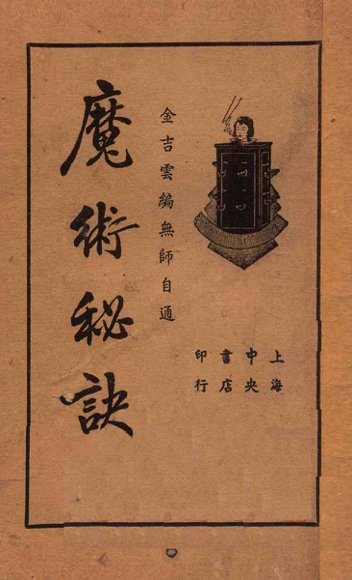 上海
中央
書店
印行
金吉雲編無師自通
魔術秘訣